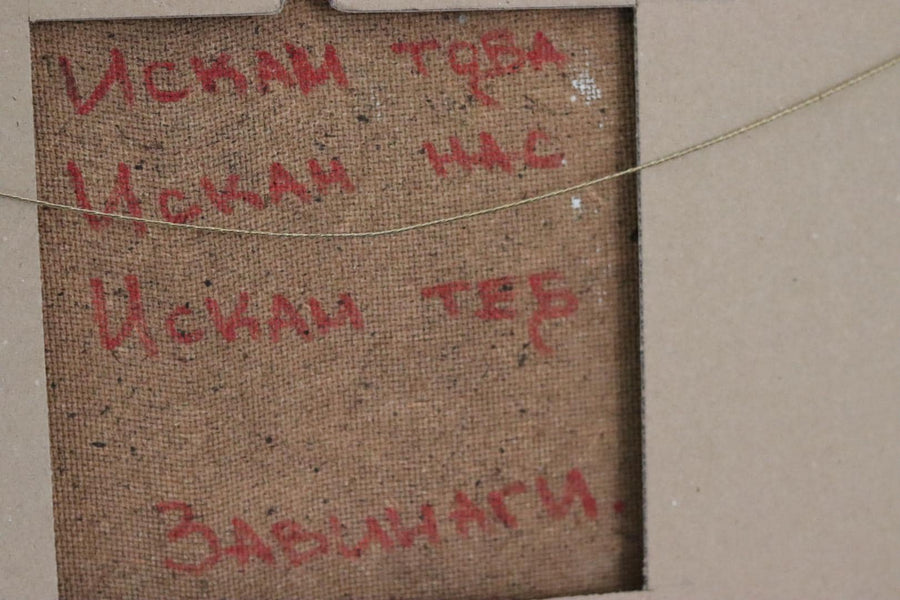 Искам това
Искам нас
Искам теб
Завинаги.